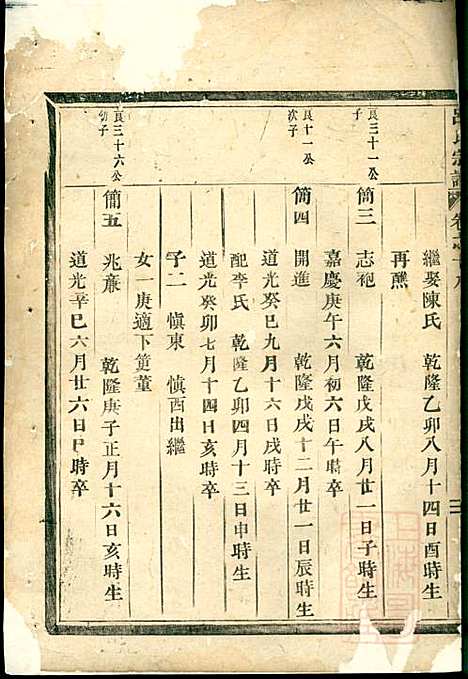 呂氏宗譜
繼娶陳氏 乾隆乙卯八月十四日酉時生
再醮
良三十一公
子
簡三 志袍 乾隆戊戌八月廿一日子時生
嘉慶庚午六月初六日午時卒
良十一公
次子
簡四 開進 乾隆戊戌十二月廿一日辰時生
道光癸巳九月十六日戌時卒
配李氏 乾隆乙卯四月十三日申時生
道光癸卯七月十四日亥時卒
子二 愼東 愼西出繼
女一庚適下箕董
良三十六公
幼子
簡五 兆蔴 乾隆庚子正月十六日亥時生
道光辛巳六月廿六日巳時卒